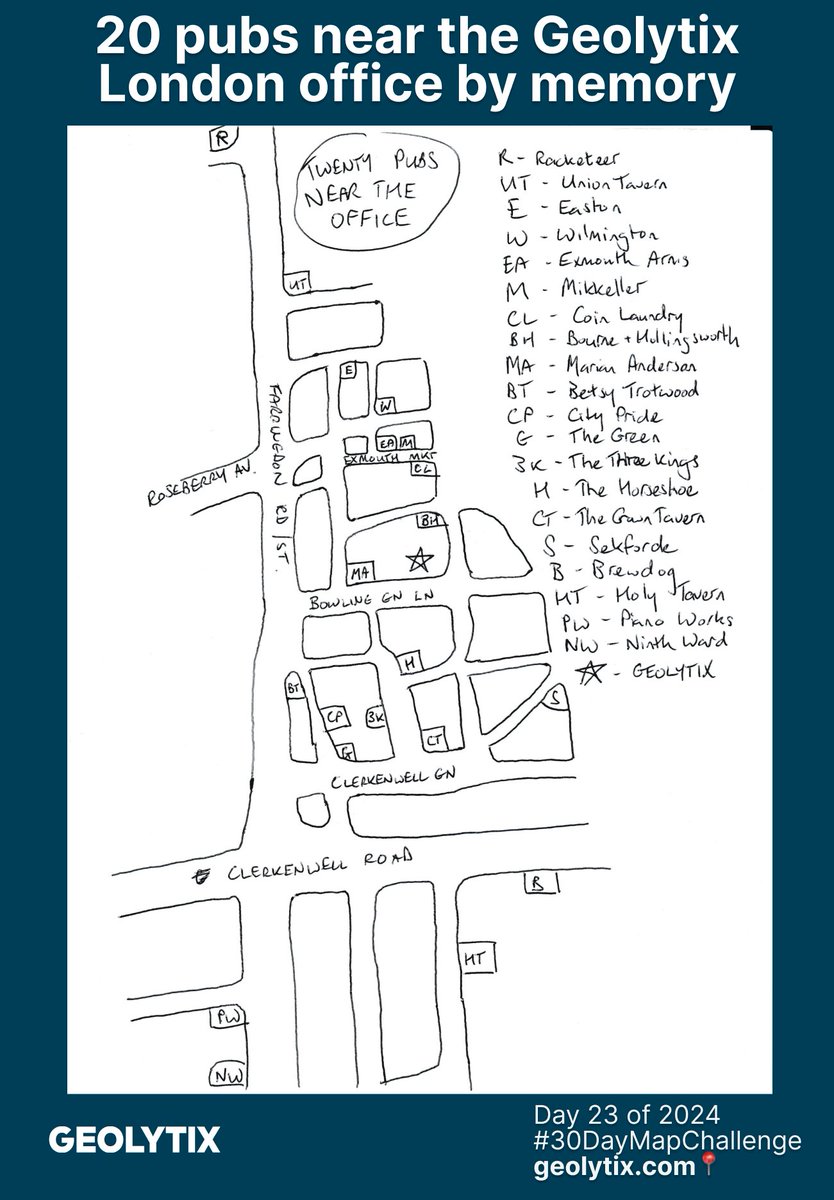 20 pubs near the Geolytix
London office by memory
R
TWENTY PUBS
NEAR THE
OFFICE
R - Racketeer
UT - Union Tavern
E - Easton
W - Wilmington
EA - Exmouth Arms
M - Mikkeller
CL - Coin Laundry
BH - Bourne + Hollingsworth
MA - Marian Anderson
BT - Betsy Trotwood
CP - City Pride
G - The Green
3K - The Three Kings
H - The Horseshoe
CT - The Crown Tavern
S - Sekforde
B - Brewdog
HT - Holy Tavern
PW - Piano Works
NW - Ninth Ward
☆ - GEOLYTIX
UT
E
W
FARRINGDON RD/ST.
EA M
EXMOUTH MKT
CL
ROSEBERRY AV.
BH
MA
BOWLING GN LN
H
BT
CP
3K
G
CT
S
CLERKENWELL GN
CLERKENWELL ROAD
B
HT
PW
NW
GEOLYTIX
Day 23 of 2024
#30DayMapChallenge
geolytix.com